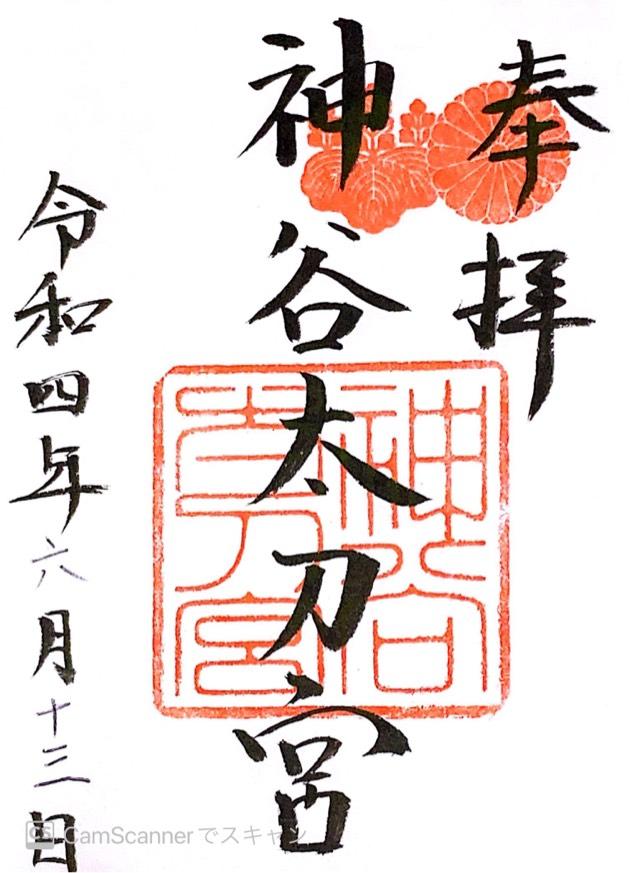 奉拝
神谷太刀宮
令和四年六月十三日
CS CamScannerでスキャン